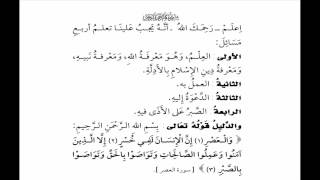 اِعْلَمْ ـ رَحِمَكَ اللهُ ـ أَنَّهُ يَجِبُ عَلَيْنَا تَعَلُّمُ أَرْبَعِ
مَسَائِلَ:
الأُولَى: العِلْمُ، وَهُوَ مَعْرِفَةُ اللهِ، وَمَعْرِفَةُ نَبِيِّهِ،
وَمَعْرِفَةُ دِينِ الإِسْلامِ بِالأَدِلَّةِ.
الثانية: العملُ بِهِ.
الثالثة: الدَّعْوَةُ إِلَيْهِ.
الرابعة: الصَّبْرُ عَلَى الأَذَى فِيهِ.
والدَّلِيلُ قَوْلُهُ تَعَالَى: بِسْمِ اللهِ الرَّحْمَنِ الرَّحِيمِ:
﴿وَالْعَصْرِ (١) إِنَّ الْإِنسَانَ لَفِي خُسْرٍ (٢) إِلَّا الَّذِينَ
آمَنُوا وَعَمِلُوا الصَّالِحَاتِ وَتَوَاصَوْا بِالْحَقِّ وَتَوَاصَوْا
بِالصَّبْرِ (٣)﴾ [سورة العصر].